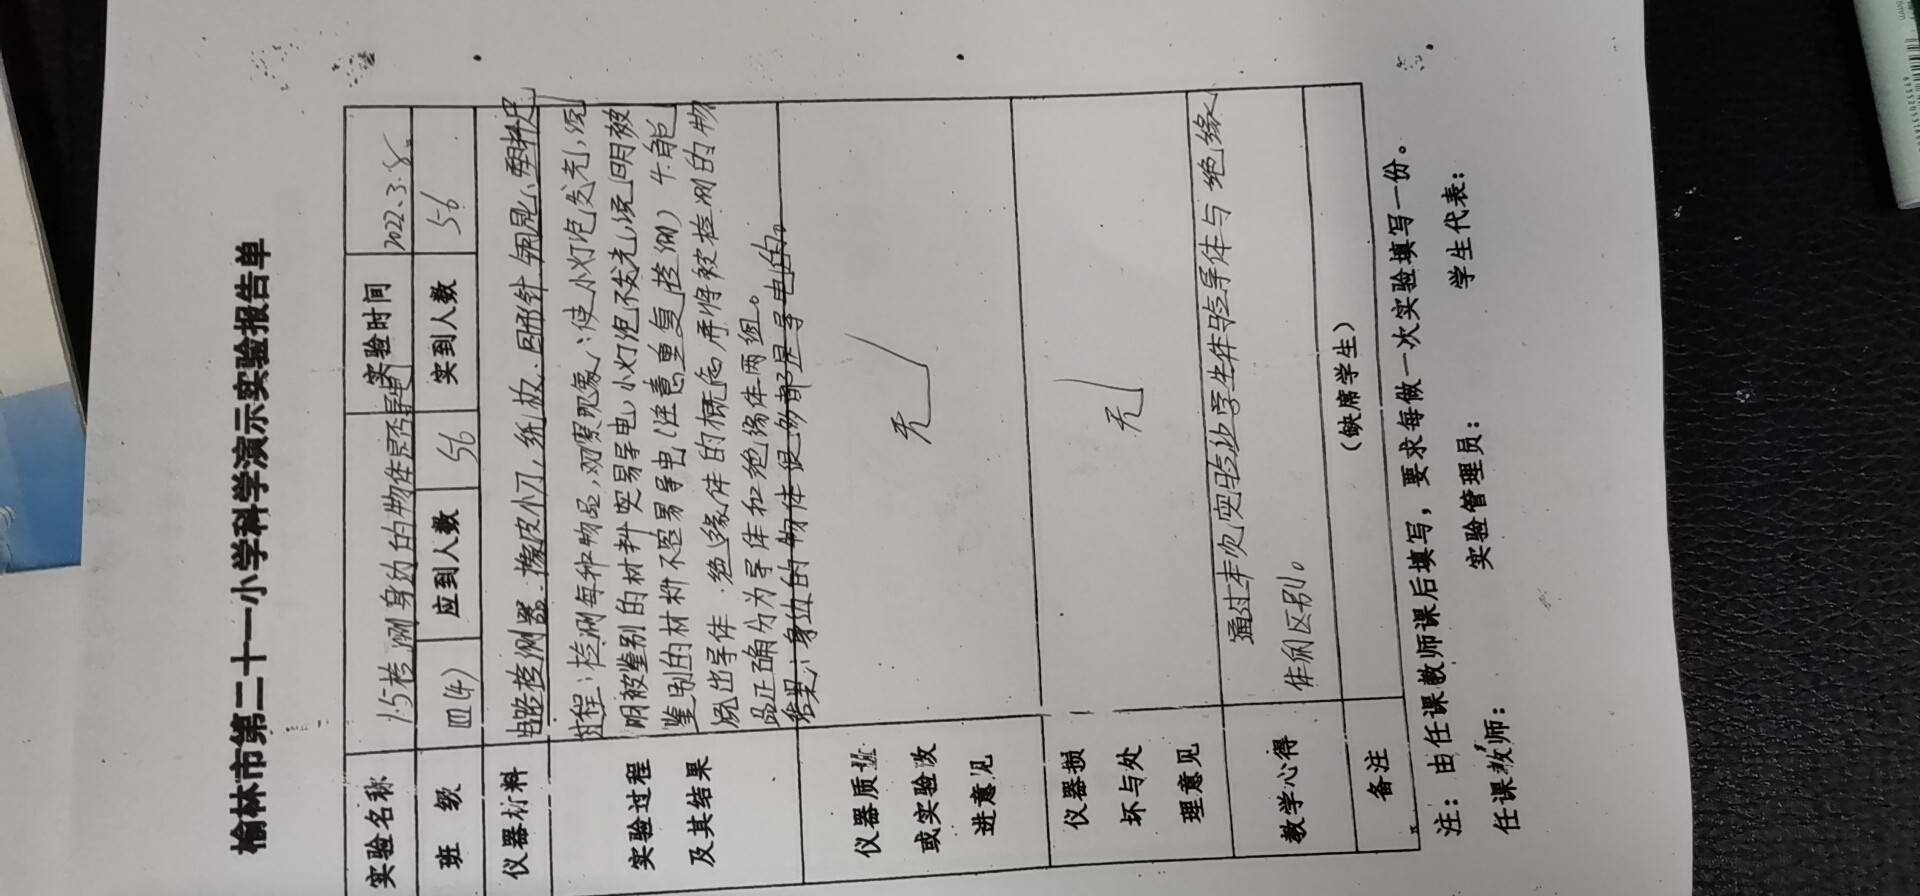 榆林市第二十一小学科学演示实验报告单
实验名称 15检测身边的物体是否导电 实验时间 2022.3.8
班 级 四(4) 应到人数 56 实到人数 56
仪器材料 电路检测器、橡皮小刀、纸板、回形针、钥匙、塑料尺
实验过程及其结果
过程:检测每种物品,观察现象:使小灯泡发光,说
明被鉴别的材料容易导电,小灯泡不发光,说明被
鉴别的材料不容易导电(注意重复检测)
出导体、绝缘体的概念,并将被检测的物
品正确分为导体和绝缘体两组。
结果:身边的物体很多都是导电的。
仪器质量或实验改进意见 无
仪器损坏与处理意见 无
教学心得 通过本项实验,让学生体验导体与绝缘
体的区别。
备注 (缺席学生)
注:由任课教师课后填写,要求每做一次实验填写一份。
任课教师: 实验管理员: 学生代表: